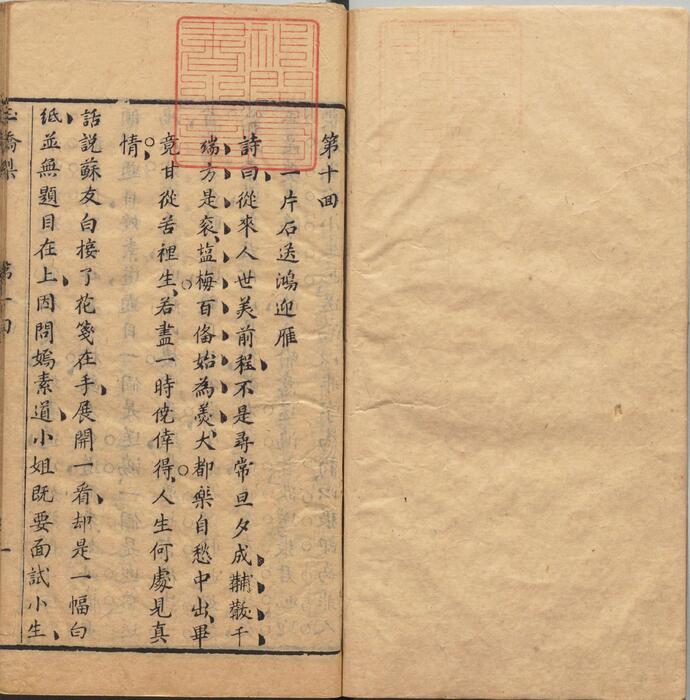 第十回
一片石送鴻迎雁
詩曰從來人世美前程不是尋常旦夕成黼黻千
端方是衮塩梅百俻始為羮大都樂自愁中出畢
竟甘從苦裡生若盡一時僥倖得人生何處見真
情
話說蘇友白接了花箋在手展開一看却是一幅白
紙並無題目在上因問嫣素道小姐既要面試小生
玉嬌梨 第十回